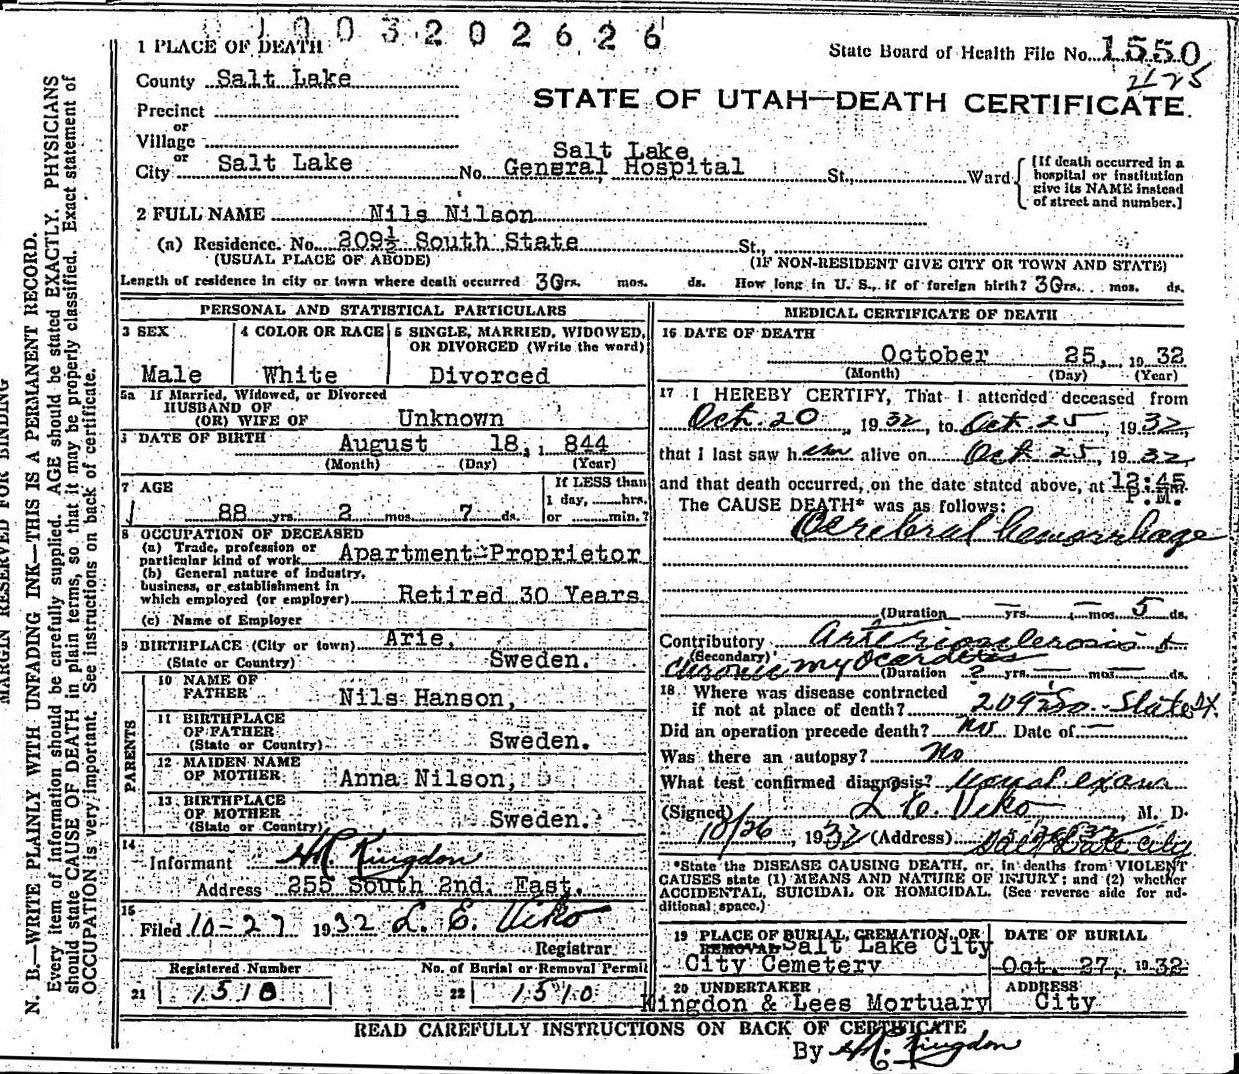 01003202626
1 PLACE OF DEATH
State Board of Health File No. 1550
2425
County Salt Lake
STATE OF UTAH—DEATH CERTIFICATE.
Precinct
or
Village
or
City Salt Lake No. Salt Lake General Hospital St., Ward
[If death occurred in a hospital or institution give its NAME instead of street and number.]
2 FULL NAME Nils Nilson
(a) Residence. No. 209½ South State St.,
(USUAL PLACE OF ABODE) (IF NON-RESIDENT GIVE CITY OR TOWN AND STATE)
Length of residence in city or town where death occurred 30 yrs. mos. ds. How long in U. S., if of foreign birth? 30 yrs. mos. ds.
PERSONAL AND STATISTICAL PARTICULARS
3 SEX
Male
4 COLOR OR RACE
White
5 SINGLE, MARRIED, WIDOWED, OR DIVORCED (Write the word)
Divorced
5a If Married, Widowed, or Divorced
HUSBAND OF
(OR) WIFE OF Unknown
6 DATE OF BIRTH
August 18, 1844
(Month) (Day) (Year)
7 AGE
88 yrs. 2 mos. 7 ds.
If LESS than
1 day, hrs.
or min.?
8 OCCUPATION OF DECEASED
(a) Trade, profession or
particular kind of work Apartment-Proprietor
(b) General nature of industry,
business, or establishment in
which employed (or employer) Retired 30 Years
(c) Name of Employer
9 BIRTHPLACE (City or town) Arie,
(State or Country) Sweden.
PARENTS
10 NAME OF
FATHER Nils Hanson,
11 BIRTHPLACE
OF FATHER
(State or Country) Sweden.
12 MAIDEN NAME
OF MOTHER Anna Nilson,
13 BIRTHPLACE
OF MOTHER
(State or Country) Sweden.
14
Informant HR Kingdon
Address 255 South 2nd. East.
15
Filed 10-27 1932 L. E. Viko
Registrar
Registered Number
21 1510
No. of Burial or Removal Permit
22 1510
MEDICAL CERTIFICATE OF DEATH
16 DATE OF DEATH
October 25, 1932
(Month) (Day) (Year)
17 I HEREBY CERTIFY, That I attended deceased from
Oct. 20, 1932, to Oct. 25, 1932,
that I last saw him alive on Oct 25, 1932,
and that death occurred, on the date stated above, at 12:45 P.M.
The CAUSE DEATH* was as follows:
Cerebral hemorrhage
(Duration — yrs. — mos. 5 ds.
Contributory Arteriosclerosis &
(Secondary)
chronic myocarditis
(Duration ? yrs. — mos. — ds.
18 Where was disease contracted
if not at place of death? 209½ So. State St.
Did an operation precede death? No Date of —
Was there an autopsy? No
What test confirmed diagnosis? Usual exam
(Signed) L E. Viko, M. D.
10/26, 1932 (Address) Salt Lake City
*State the DISEASE CAUSING DEATH, or, in deaths from VIOLENT
CAUSES state (1) MEANS AND NATURE OF INJURY; and (2) whether
ACCIDENTAL, SUICIDAL OR HOMICIDAL. (See reverse side for ad-
ditional space.)
19 PLACE OF BURIAL, CREMATION, OR
REMOVAL Salt Lake City
City Cemetery
DATE OF BURIAL
Oct. 27, 1932
20 UNDERTAKER
Kingdon & Lees Mortuary
ADDRESS
City
READ CAREFULLY INSTRUCTIONS ON BACK OF CERTIFICATE
By HR. Kingdon
MARGIN RESERVED FOR BINDING
N. B.—WRITE PLAINLY WITH UNFADING INK—THIS IS A PERMANENT RECORD.
Every item of information should be carefully supplied. AGE should be stated EXACTLY. PHYSICIANS
should state CAUSE OF DEATH in plain terms, so that it may be properly classified. Exact statement of
OCCUPATION is very important. See instructions on back of certificate.